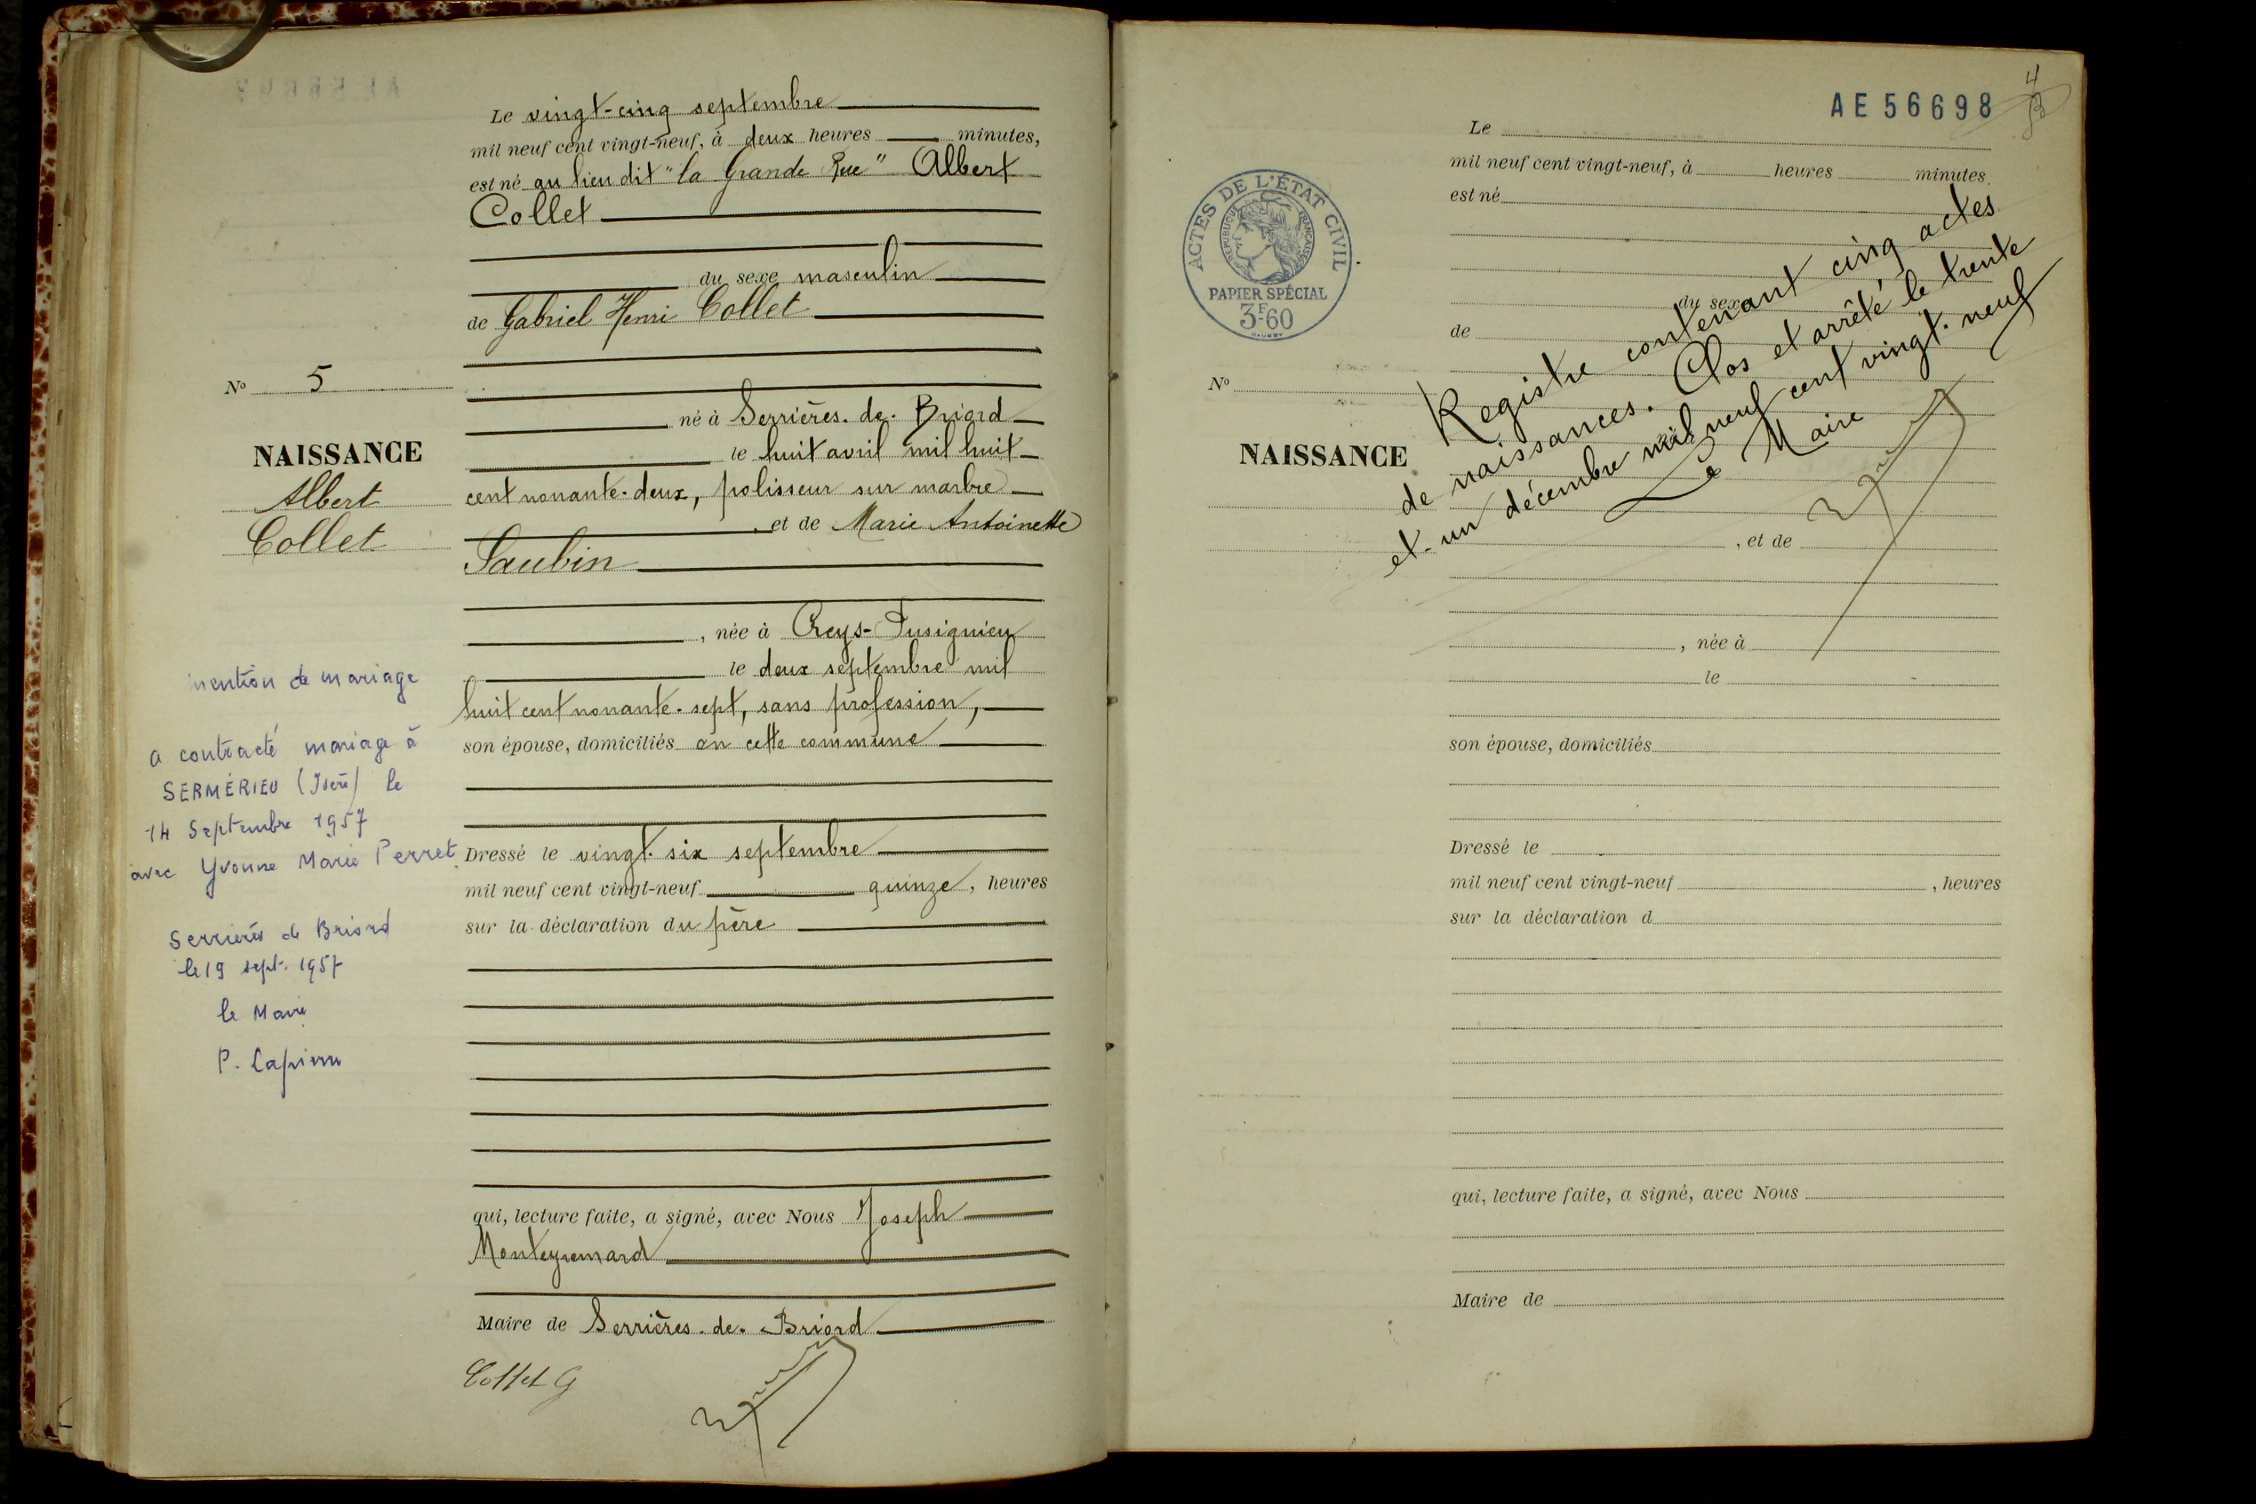 Le vingt-cinq septembre
mil neuf cent vingt-neuf, à deux heures minutes,
est né au lieu dit "la Grande Rue" Albert
Collet
du sexe masculin
de Gabriel Henri Collet
No 5
né à Serrières-de-Briord
le huit avril mil huit
NAISSANCE
Albert
Collet
cent nonante-deux, polisseur sur marbre
, et de Marie Antoinette
Saubin
, née à Creys-Pusignieu
le deux septembre mil
huit cent nonante-sept, sans profession,
son épouse, domiciliés en cette commune
mention de mariage
a contracté mariage à
SERMÉRIEU (Isère) le
14 Septembre 1957
avec Yvonne Marie Perret
Serrières de Briord
le 19 sept. 1957
le Maire
Dressé le vingt-six septembre
mil neuf cent vingt-neuf quinze, heures
sur la déclaration du père
qui, lecture faite, a signé, avec Nous Joseph
Monteyremard
Maire de Serrières-de-Briord
Collet G
AE 56698
4
ACTES DE L'ÉTAT CIVIL
RÉPUBLIQUE FRANÇAISE
PAPIER SPÉCIAL
3F60
Le
mil neuf cent vingt-neuf, à heures minutes
est né
du sexe
de
No
NAISSANCE
Registre contenant cinq actes
de naissances. Clos et arrêté le trente
et-un décembre mil neuf cent vingt-neuf
Le Maire
, et de
, née à
le
son épouse, domiciliés
Dressé le
mil neuf cent vingt-neuf , heures
sur la déclaration d
qui, lecture faite, a signé, avec Nous
Maire de